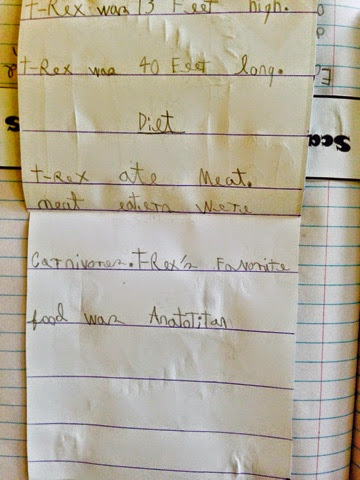 T-Rex was 13 Feet high.
T-Rex was 40 Feet long.
Diet
T-Rex ate meat.
meat eaters were
Carnivores. T-Rex's Favorite
food was Anatotitan